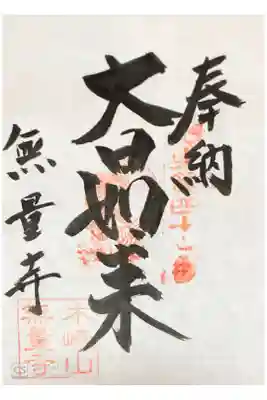 奉納
大日如来
無量寺
木崎山
無量寺